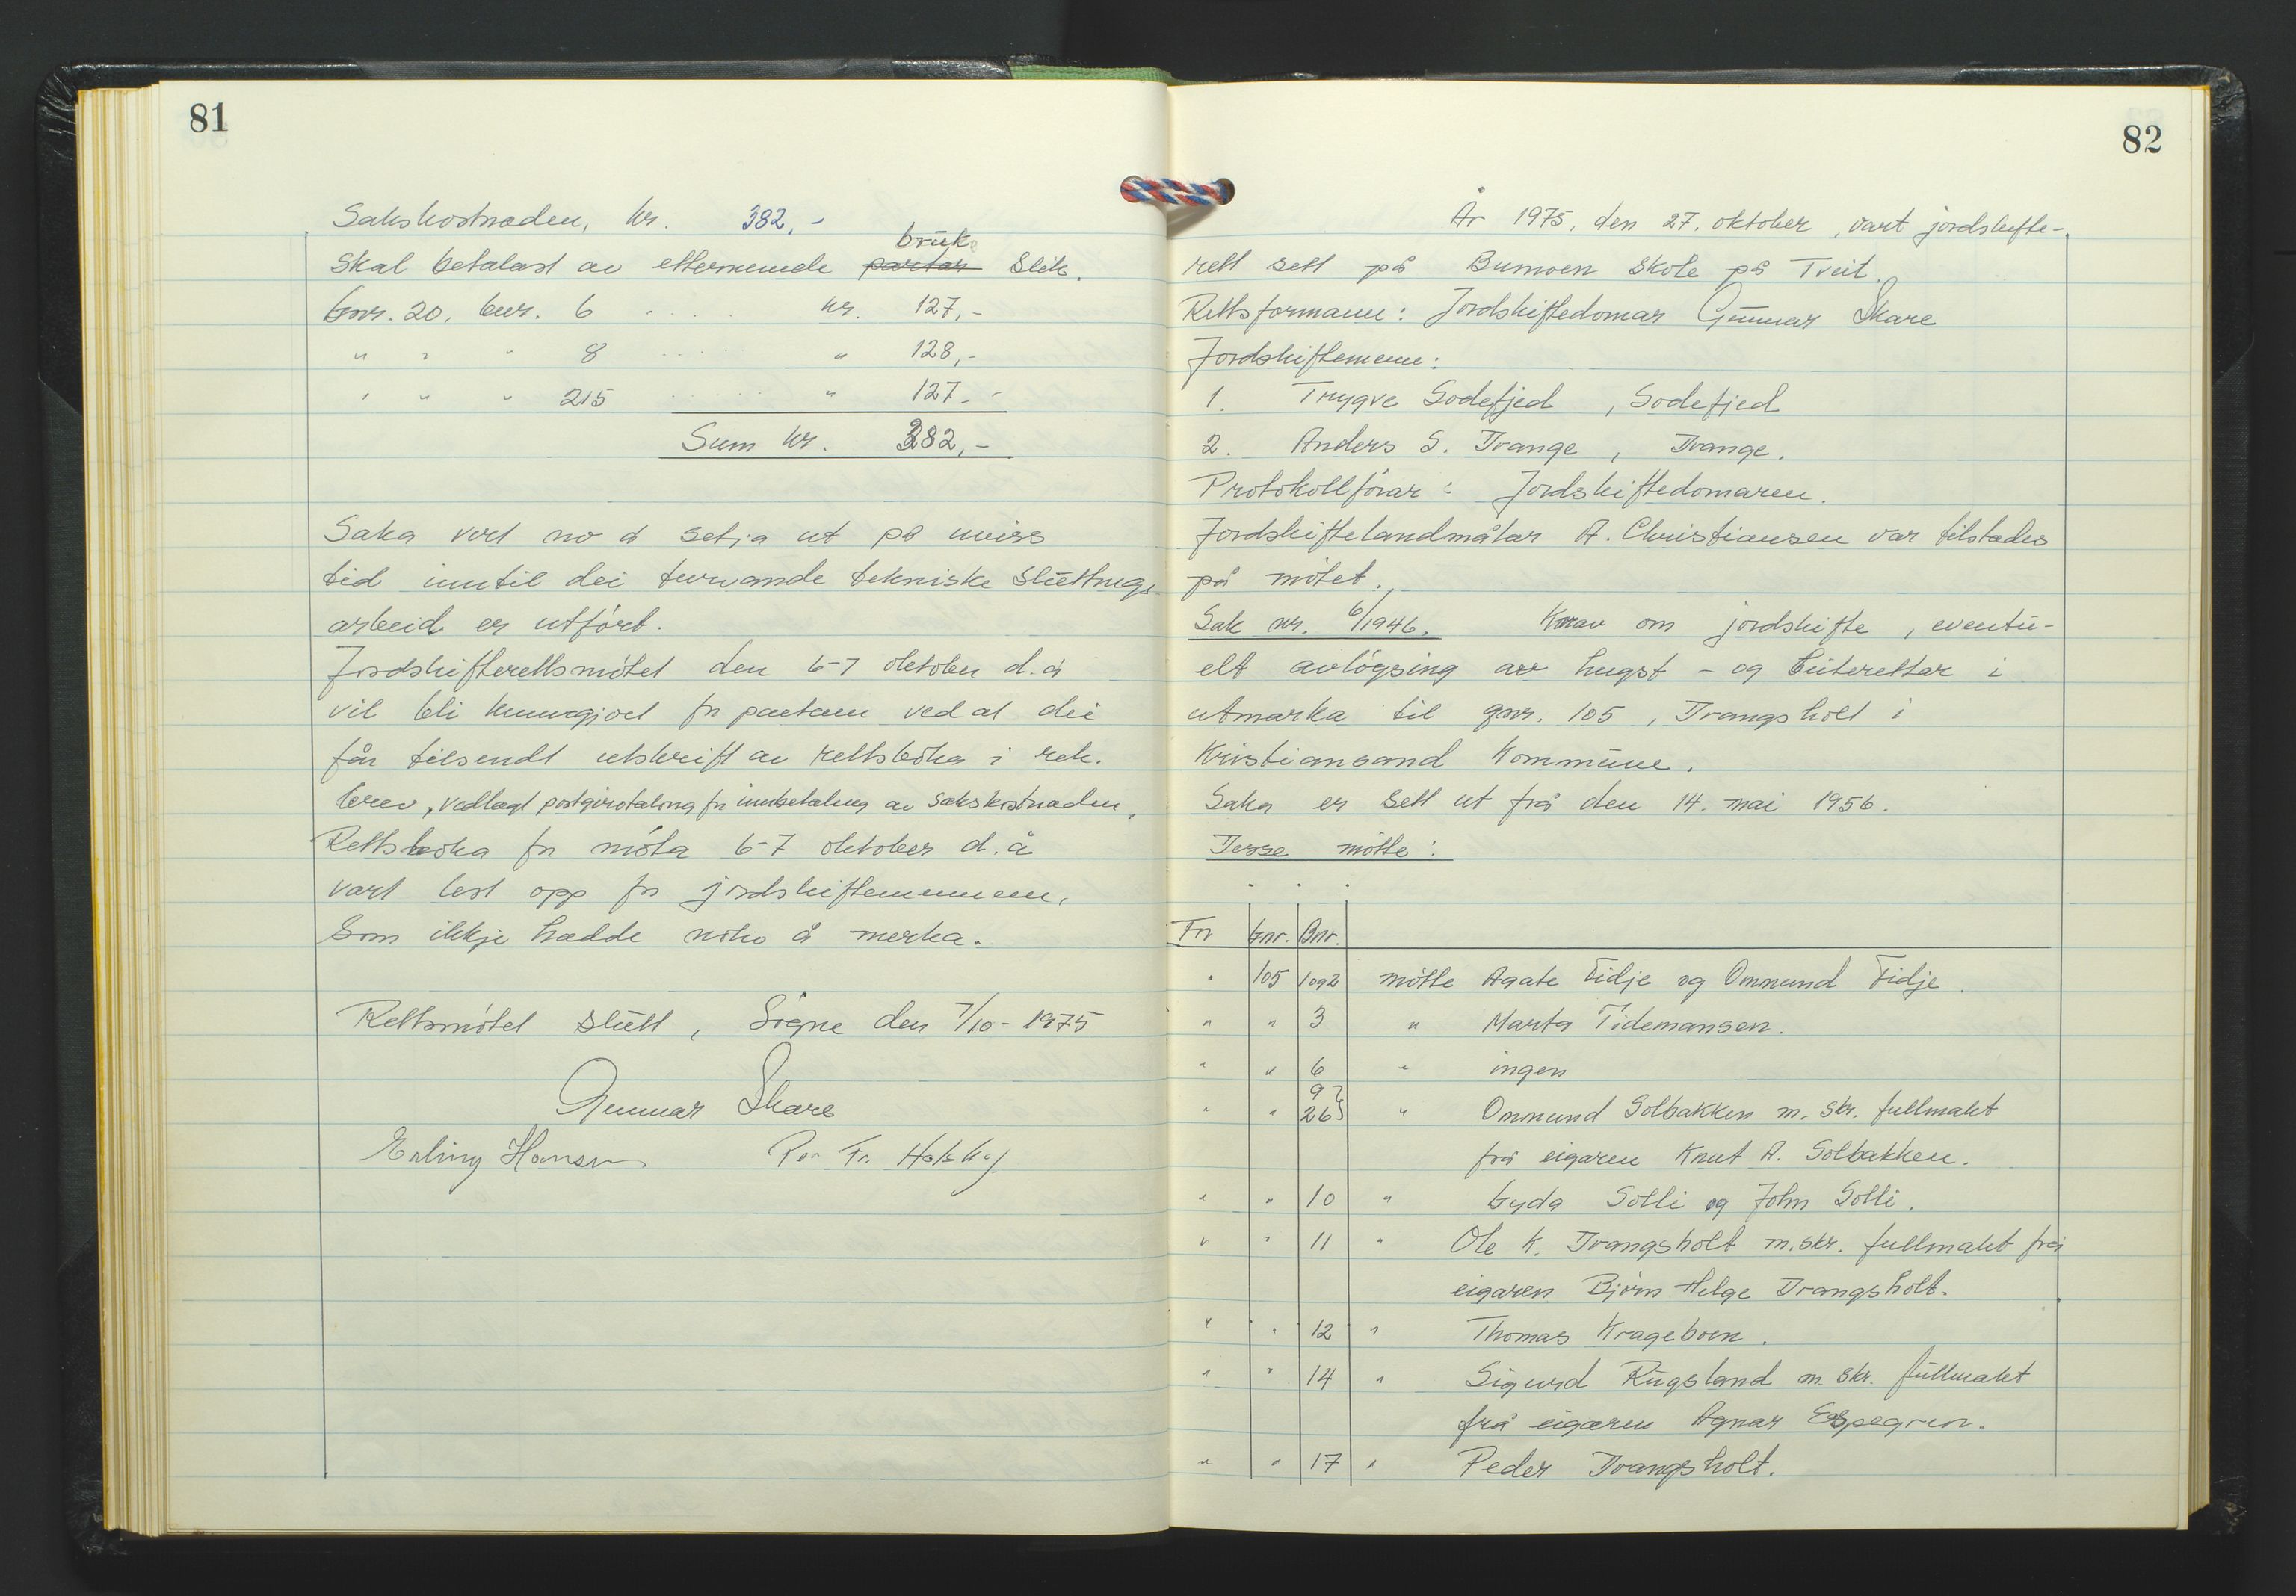 81
Sakskostnaden, kr. 382,-
bruk
skal betalast av etternemnde partar slik.
Gnr. 20, bnr. 6 ..... kr. 127,-
" " " 8 ..... " 128,-
" " " 215 ..... " 127,-
Sum kr. 382,-
Saka vert no å setja ut på uviss
tid inntil dei turvande tekniske sluttnings-
arbeid er utført.
Jordskifterettsmøtet den 6-7 oktober d.å
vil bli kunngjort for partane ved at dei
får tilsendt utskrift av rettsboka i rek.
brev, vedlagt postgirotalong for innbetaling av sakskostnaden.
Rettsboka for møta 6-7 oktober d.å
vart lest opp for jordskiftemennene,
som ikkje hadde noko å merka.
Rettsmøtet slutt, Søgne den 7/10-1975
Gunnar Skare
Erling Hansen Per Fr.
82
År 1975, den 27. oktober, vart jordskifte-
rett sett på Bumoen skole på Tveit.
Rettsformann: Jordskiftedomar Gunnar Skare
Jordskiftemenn:
1. Trygve Sodefjed, Sodefjed
2. Anders S. Drange, Drange.
Protokollførar: Jordskiftedomaren.
Jordskiftelandmålar A. Christiansen var tilstades
på møtet.
Sak nr. 6/1946. Krav om jordskifte, eventu-
elt avløysing av hugst- og beiterettar i
utmarka til gnr. 105, Drangsholt i
Kristiansand kommune.
Saka er sett ut frå den 14. mai 1956.
Desse møtte:
For Gnr. Bnr.
" 105 1og2 møtte Agate Tidje og Ommund Tidje.
" " 3 " Marta Tidemansen.
" " 6 " ingen
9}
" " 26} " Ommund Solbakken m. skr. fullmakt
frå eigaren Knut A. Solbakken.
" " 10 " Gyda Solli og John Solli.
" " 11 " Ole K. Drangsholt m.skr. fullmakt frå
eigaren Bjørn Helge Drangsholt.
" " 12 " Thomas Krageboen.
" " 14 " Sigurd Rugsland m. skr. fullmakt
frå eigaren Agnar Espegren.
" " 17 " Peder Drangsholt.